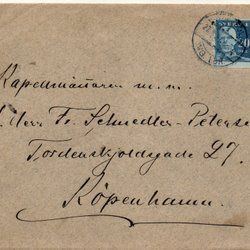 SVERIGE
20
Kapellmästaren m.m.
Herr Fr. Schnedler-Petersen
Tordenskjoldsgade 27.
Köpenhamn.